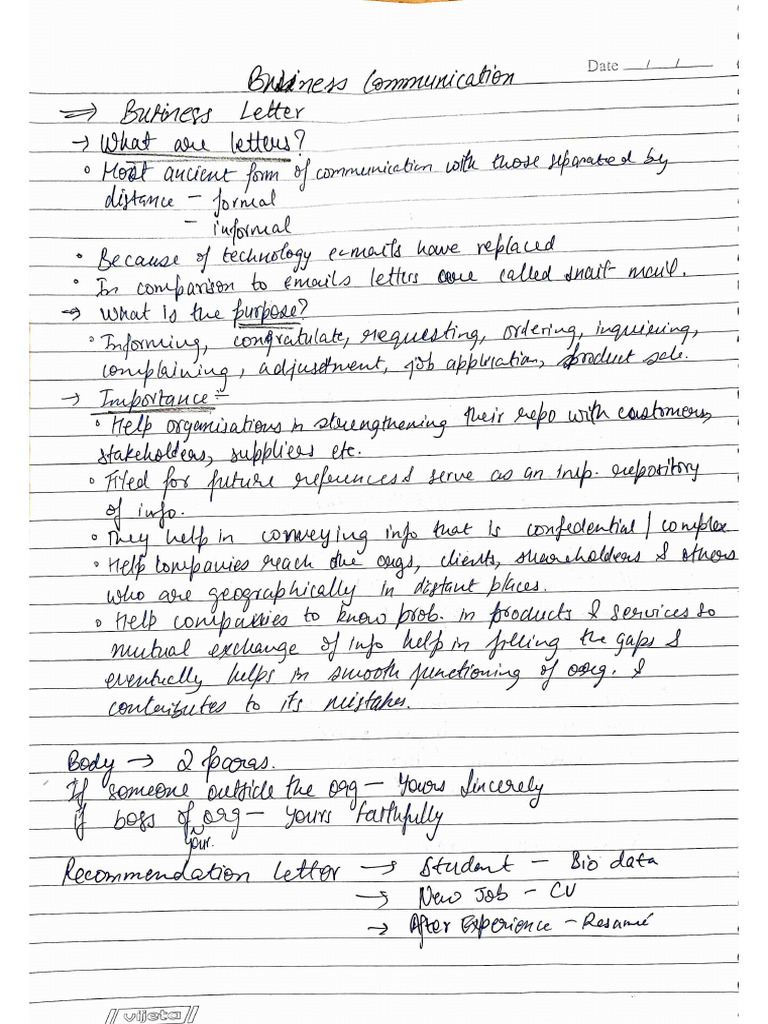 Date __/__/__
Business Communication
=> Business Letter
→ What are letters?
• Most ancient form of communication with those separated by
distance - formal
- informal
• Because of technology e-mails have replaced
• In comparison to emails letters are called snail mail.
→ What is the purpose?
• Informing, congratulate, requesting, ordering, inquiring,
complaining, adjustment, job application, product sale.
→ Importance :-
• Help organisations in strengthening their repo with customers,
stakeholders, suppliers etc.
• Filed for future references & serve as an imp. repository
of info.
• They help in conveying info that is confedential / complex
• Help companies reach the orgs, clients, shareholders & others
who are geographically in distant places.
• Help companies to know prob. in products & services so
mutual exchange of info help in filling the gaps &
eventually helps in smooth functioning of org. &
contributes to its mistakes.
Body → 2 paras.
If someone outside the org - Yours Sincerely
if boss of your org - Yours Faithfully
Recommendation Letter → Student - Bio data
→ New Job - CV
→ After Experience - Resumé
vijeta